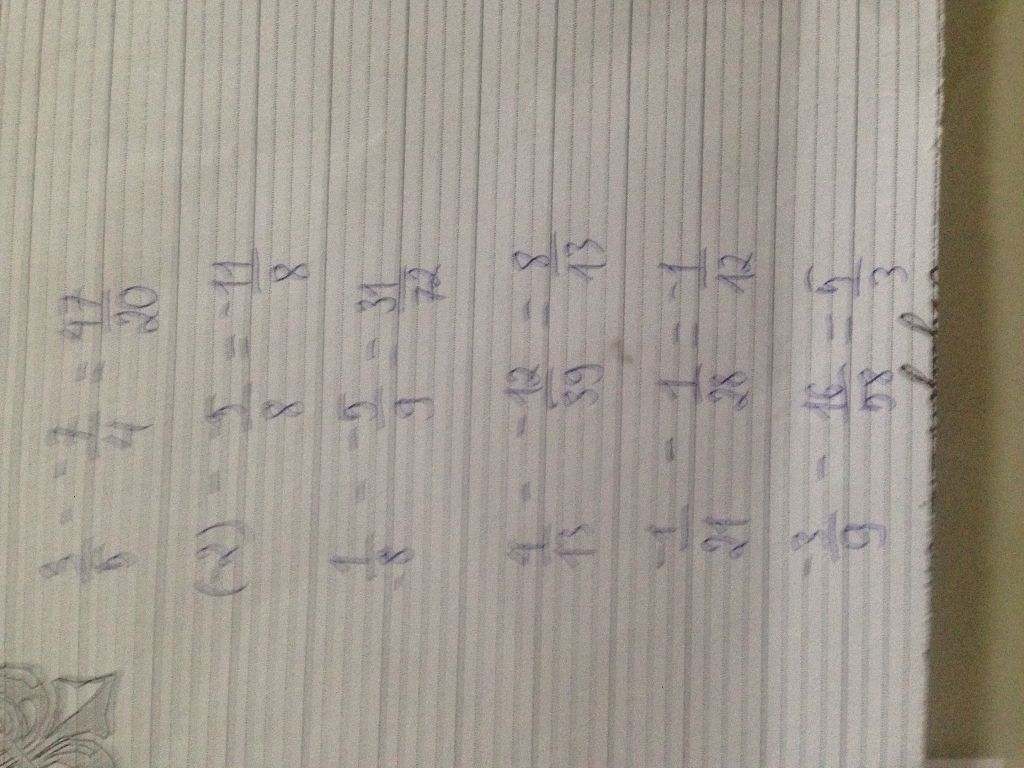 3/5 - -7/4 = 47/20
(-2) - -5/8 = -11/8
1/-8 - -5/9 = 31/72
4/13 - -12/39 = 8/13
-1/21 - 1/28 = -1/12
-3/9 - = 5/3